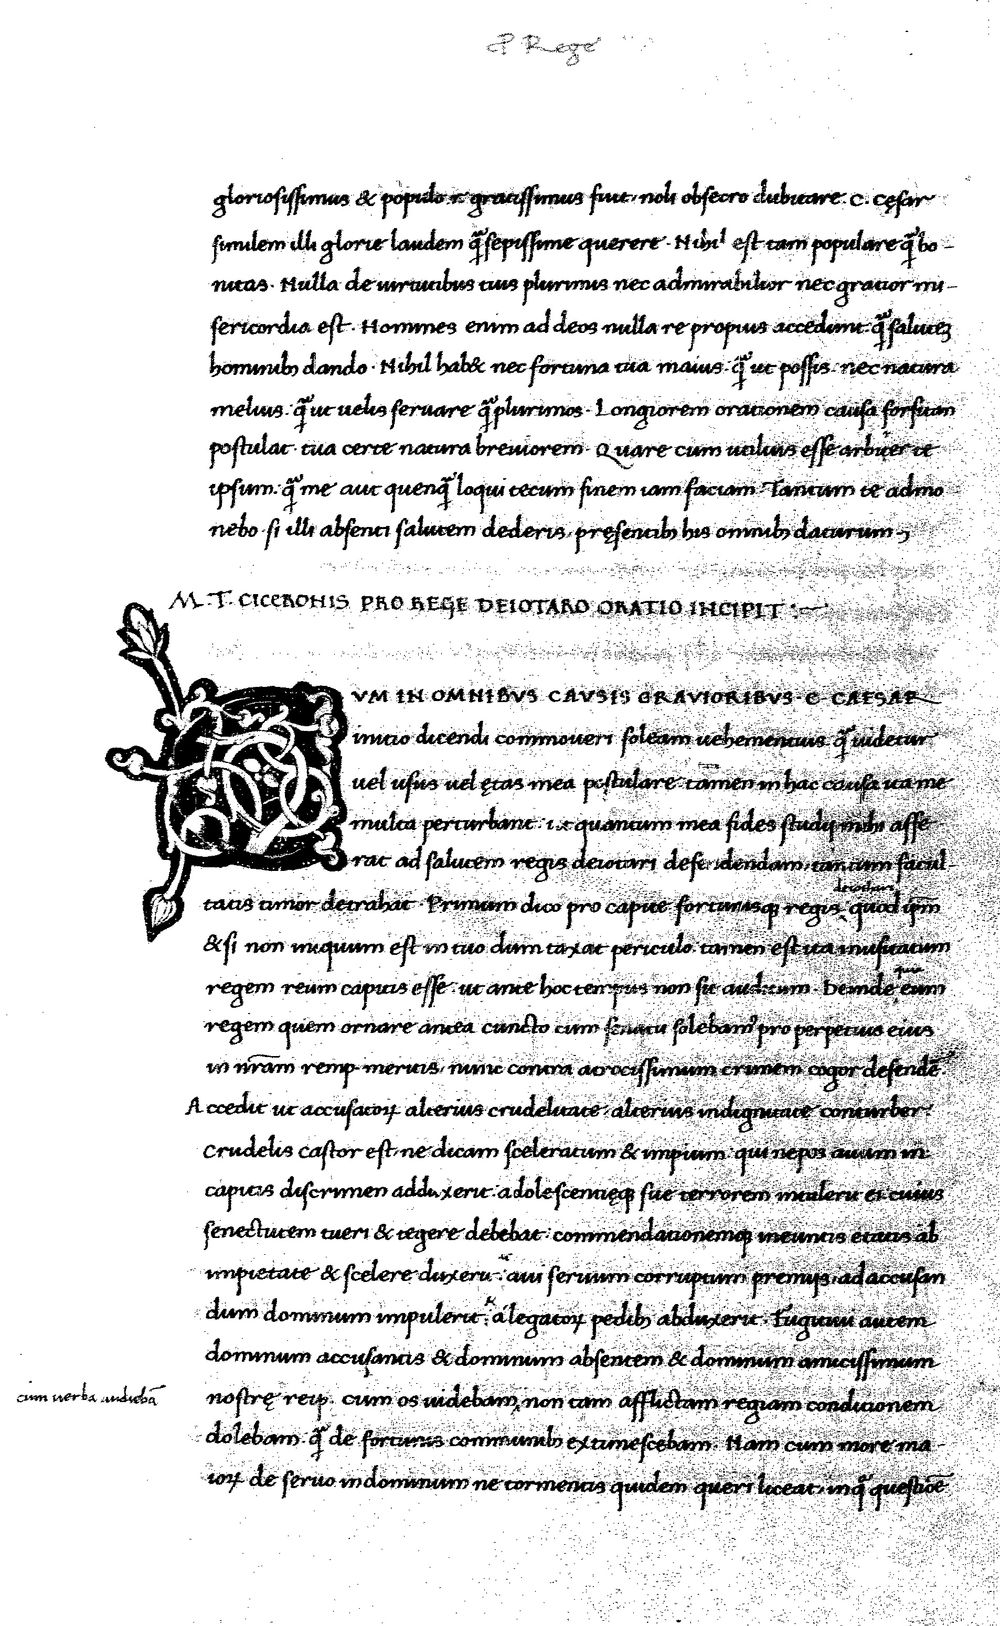 P Rege
gloriosissimus & populo r. gratissimus fuit, noli obsecro dubitare C. Cęsar
similem illi glorie laudem q̃ sepissime querere. Nihil est tam populare q̃ bo-
nitas. Nulla de uirtutibus tuis plurimis nec admirabilior nec gratior mi-
sericordia est. Homines enim ad deos nulla re propius accedunt q̃ salutẽ
hominibꝫ dando. Nihil hab& nec fortuna tua maius q̃ ut possis. nec natura
melius: q̃ ut uelis seruare q̃ plurimos. Longiorem orationem causa forsitan
postulat. tua certe natura breuiorem. Quare cum utilius esse arbitrer te
ipsum. q̃ me aut quenq̃ loqui tecum finem iam faciam. Tantum te admo
nebo. si illi absenti salutem dederis, pręsentibꝫ his omnibꝫ daturum
M. T. CICERONIS PRO REGE DEIOTARO ORATIO INCIPIT :
CVM IN OMNIBVS CAVSIS GRAVIORIBVS. C. CAESAR
initio dicendi commoueri soleam uehementius. q̃ uidetur
uel usus uel ętas mea postulare. tamen in hac causa ita me
multa perturbant. ut quantum mea fides studij mihi affe
rat ad salutem regis deiotari defendendam, tantum facul-
deiotari
tatis timor detrahat. Primum dico pro capite fortunisqꝫ regis quod ip̃m
& si non iniquum est in tuo dum taxat periculo. tamen est ita inusitatum
quia
regem reum capitis esse. ut ante hoc tempus non sit auditum. Deinde eum
regem quem ornare antea cuncto cum senatu solebam, pro perpetuis eius
in nr̃am remp. meritis, nunc contra atrocissimum crimen cogor defendẽ
Accedit ut accusatoꝝ alterius crudelitate, alterius indignitate conturber:
Crudelis castor est, ne dicam sceleratum & impium: qui nepos auum in
capitis discrimen adduxerit: adolescentięqꝫ sue terrorem intulerit ei cuius
senectutem tueri & tegere debebat. commendationemqꝫ ineuntis etatis ab
impietate & scelere duxerit: aui seruum corruptum premijs, ad accusan
dum dominum impulerit: a legatoꝝ pedibꝫ abduxerit. Fugitiui autem
dominum accusantis & dominum absentem & dominum amicissimum
cum uerba audiebã
nostrę reip. cum os uidebam, non tam afflictam regiam conditionem
dolebam. q̃ de fortunis communibꝫ extimescebam. Nam cum more ma-
ioꝝ de seruo in dominum ne tormentis quidem queri liceat, in q̃ questiõe